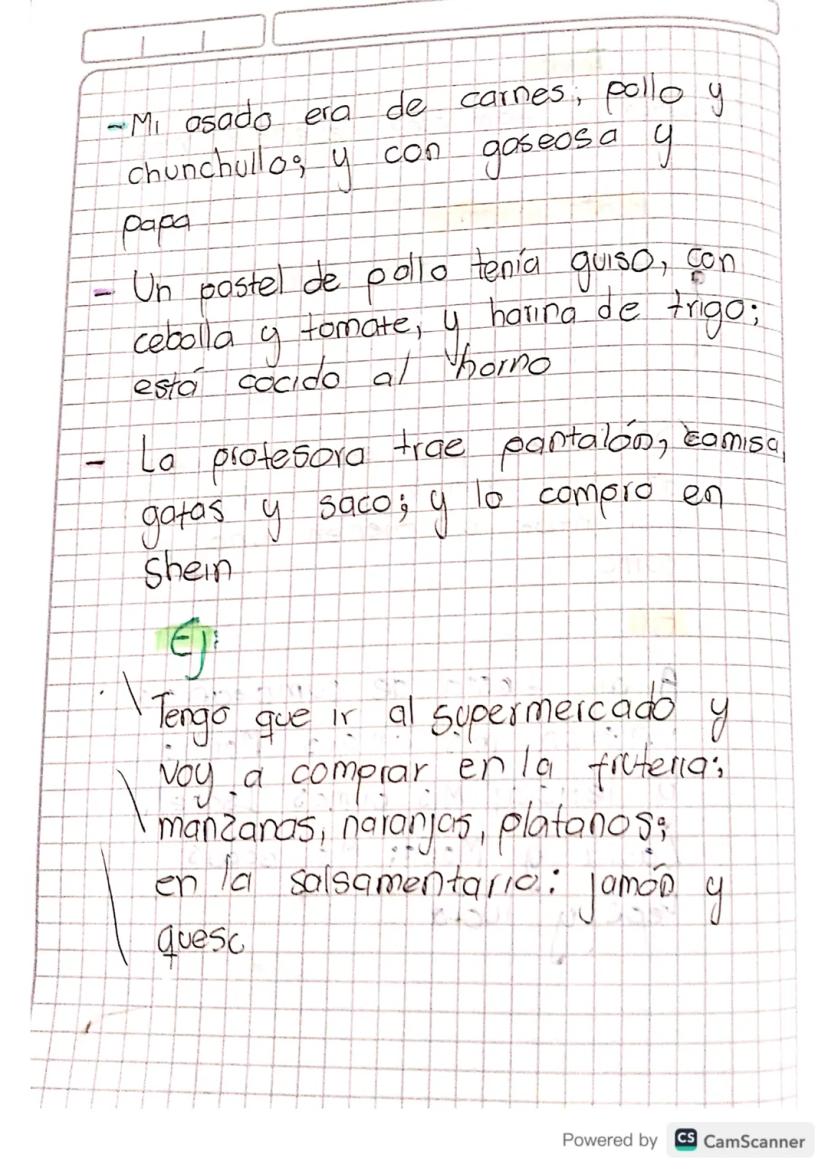 - Mi asado era de carnes, pollo y
chunchullo; y con gaseosa y
papa
- Un pastel de pollo tenía guiso, con
cebolla y tomate, y harina de trigo;
está cocido al horno
- La profesora trae pantalón, camisa,
gafas y saco; y lo compro en
Shein
Ej:
Tengo que ir al supermercado y
voy a comprar en la fruteria;
manzanas, naranjas, platanos;
en la salsamentario: jamón y
queso
Powered by CS CamScanner